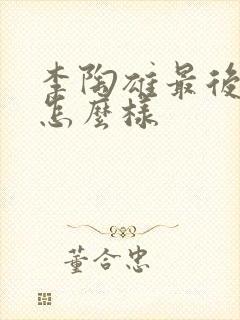 李陶雄最後
怎麼樣
董合忠